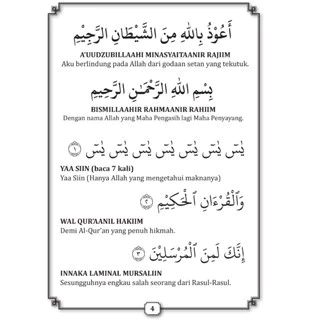 أَعُوْذُ بِاللهِ مِنَ الشَّيْطَانِ الرَّجِيْمِ
A'UUDZUBILLAAHI MINASYAITAANIR RAJIIM
Aku berlindung pada Allah dari godaan setan yang tekutuk.
بِسْمِ اللهِ الرَّحْمَـٰنِ الرَّحِيْمِ
BISMILLAAHIR RAHMAANIR RAHIIM
Dengan nama Allah yang Maha Pengasih lagi Maha Penyayang.
يٰسٓ يٰسٓ يٰسٓ يٰسٓ يٰسٓ يٰسٓ يٰسٓ ١
YAA SIIN (baca 7 kali)
Yaa Siin (Hanya Allah yang mengetahui maknanya)
وَٱلْقُرْءَانِ ٱلْحَكِيْمِ ٢
WAL QUR'AANIL HAKIIM
Demi Al-Qur'an yang penuh hikmah.
إِنَّكَ لَمِنَ ٱلْمُرْسَلِيْنَ ٣
INNAKA LAMINAL MURSALIIN
Sesungguhnya engkau salah seorang dari Rasul-Rasul.
4